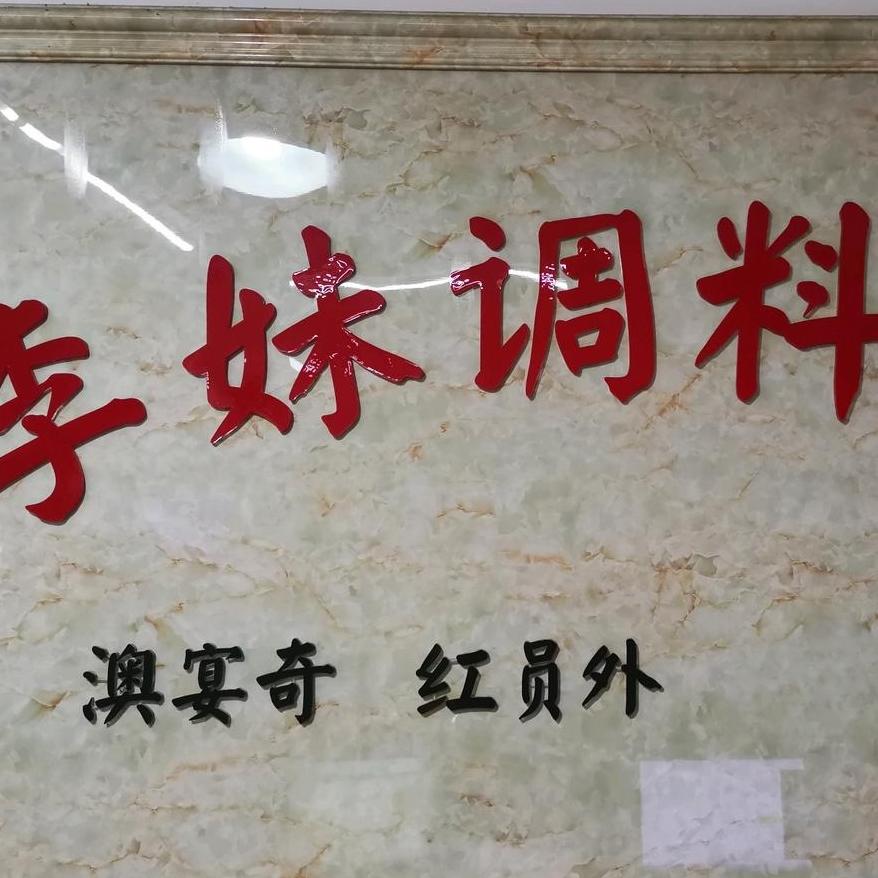 李妹调料
澳宴奇 红员外